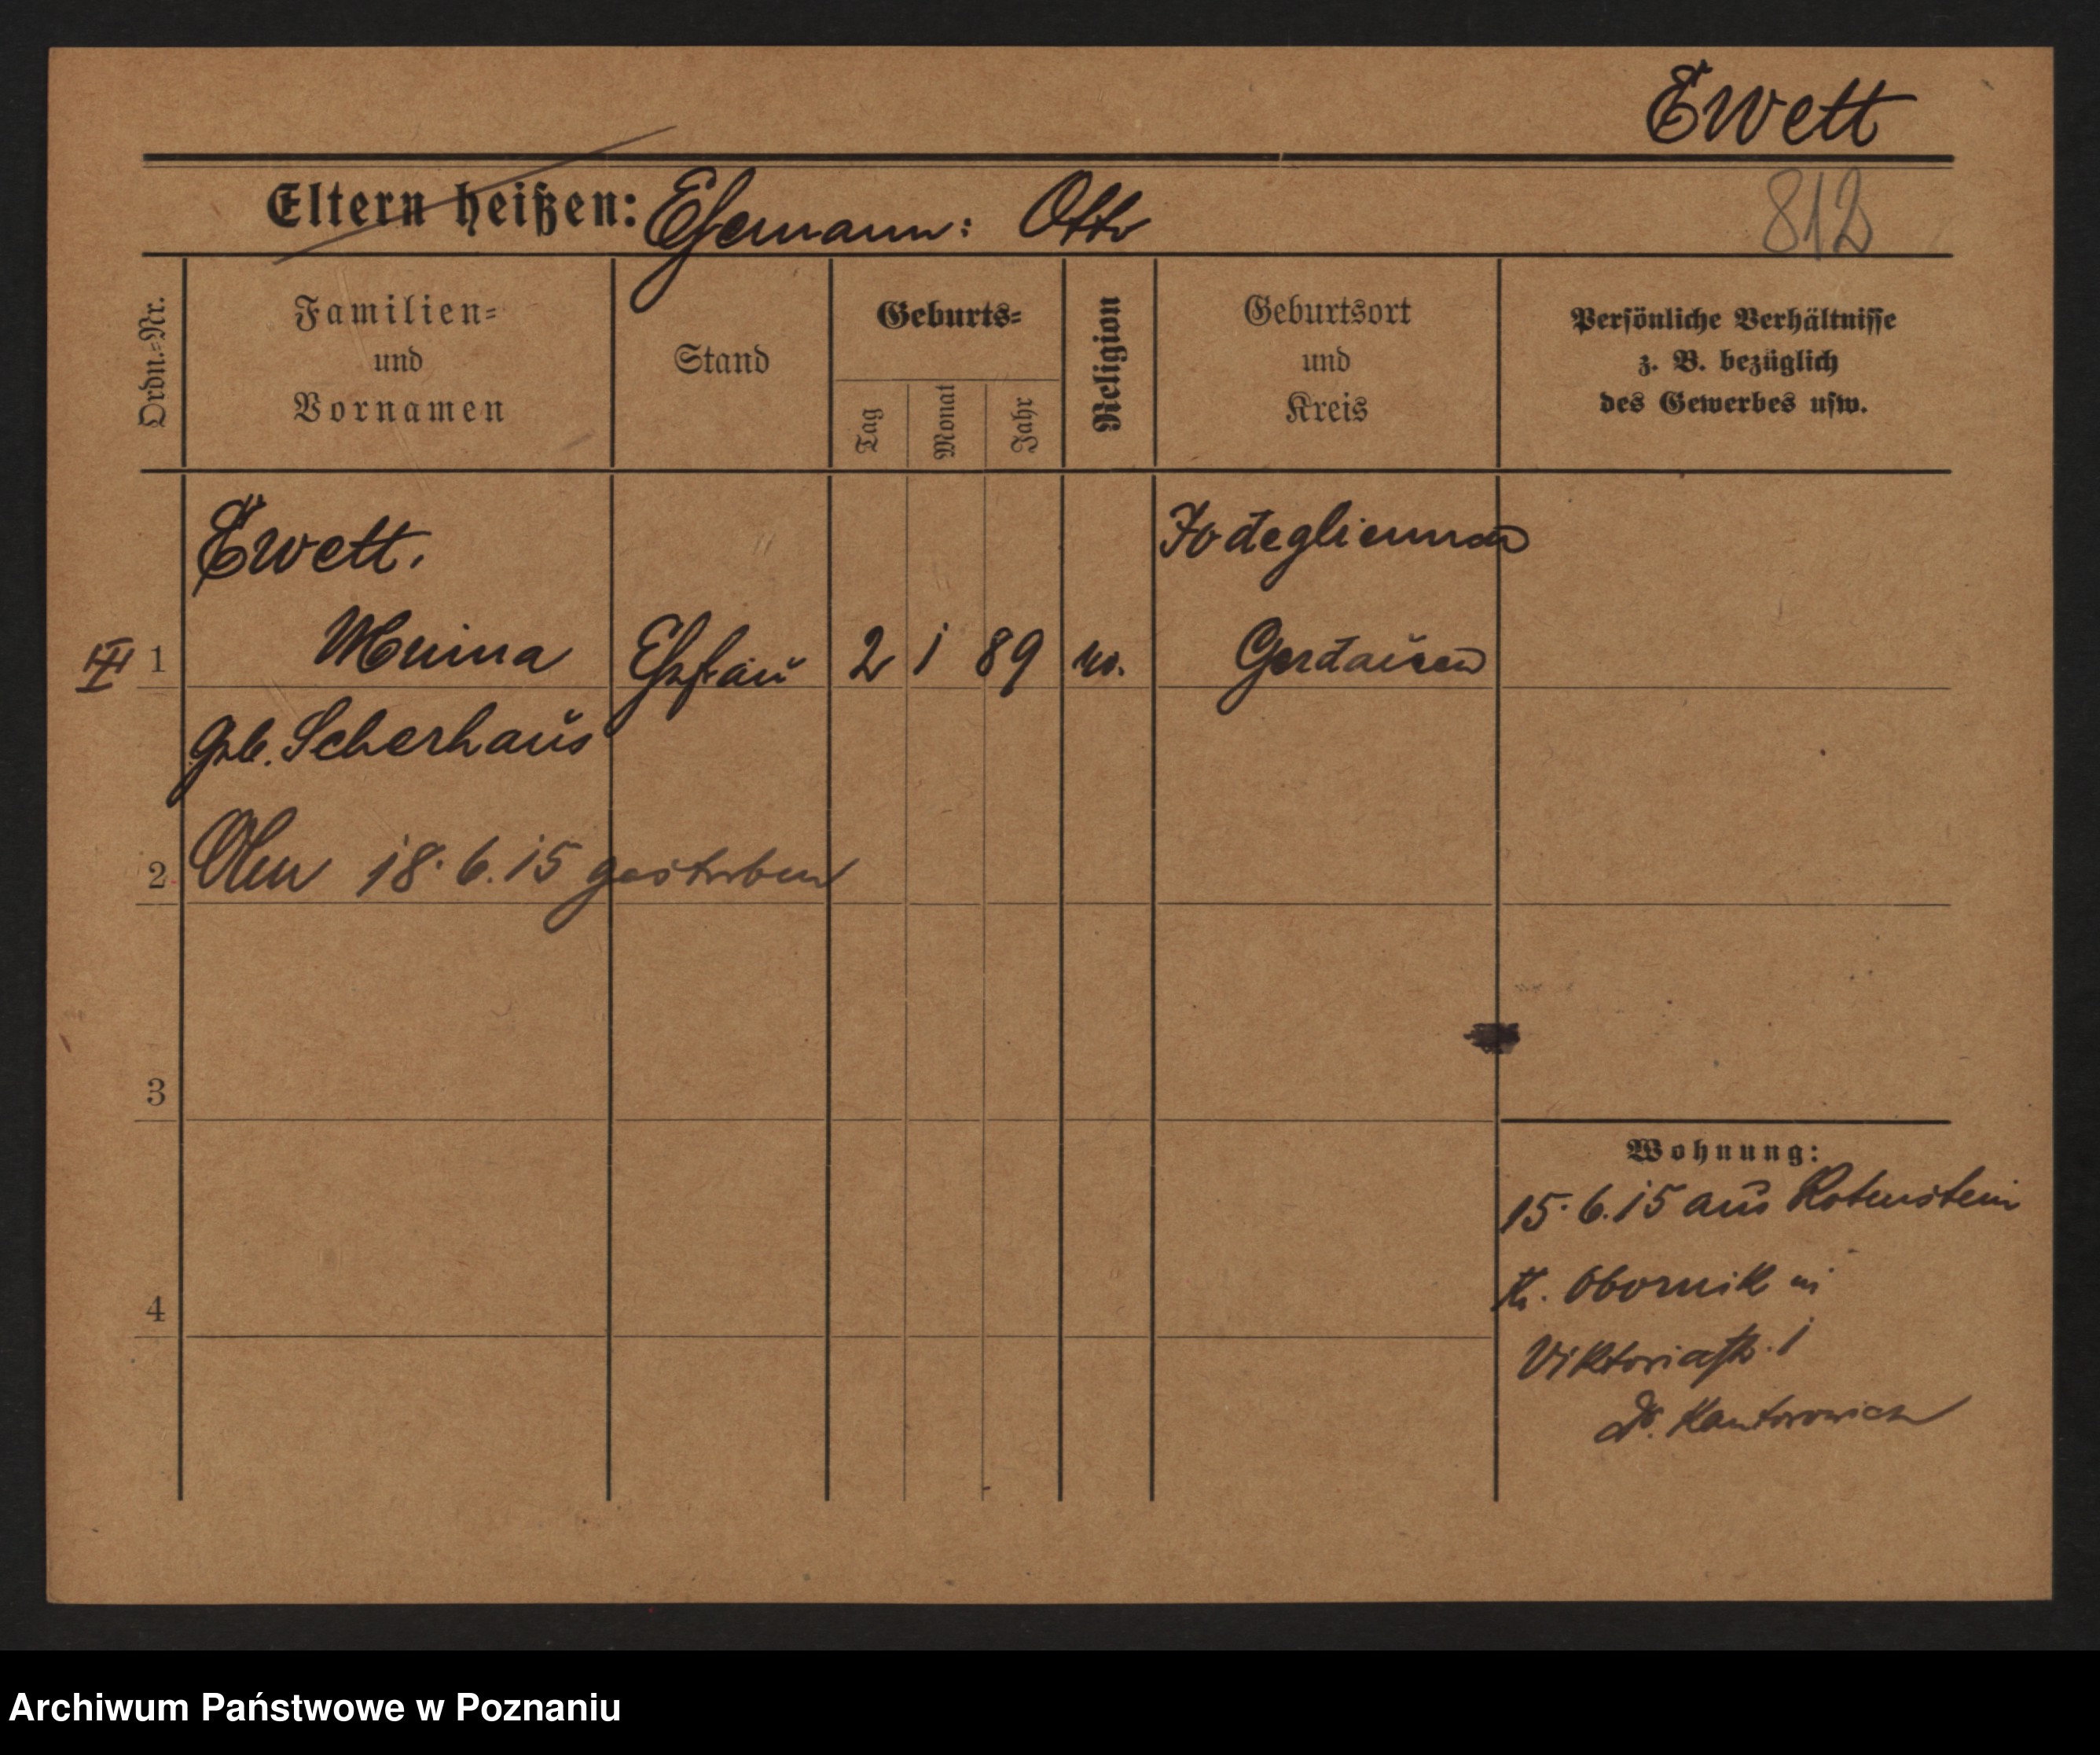 Ewett
Eltern heißen: Ehemann: Otto
812
Ordn.-Nr.
Familien-
und
Vornamen
Stand
Geburts-
Tag
Monat
Jahr
Religion
Geburtsort
und
Kreis
Persönliche Verhältnisse
z. B. bezüglich
des Gewerbes usw.
Ewett.
III 1 Minna Ehefrau 2 1 89 ev. Gerdauen
geb. Scherhaus
2 18.6.15 gestorben
3
Wohnung:
15.6.15 aus Rotenstein
Kr. Obornik in
4
Viktoriastr. 1
Dr. Kantorowicz
Archiwum Państwowe w Poznaniu